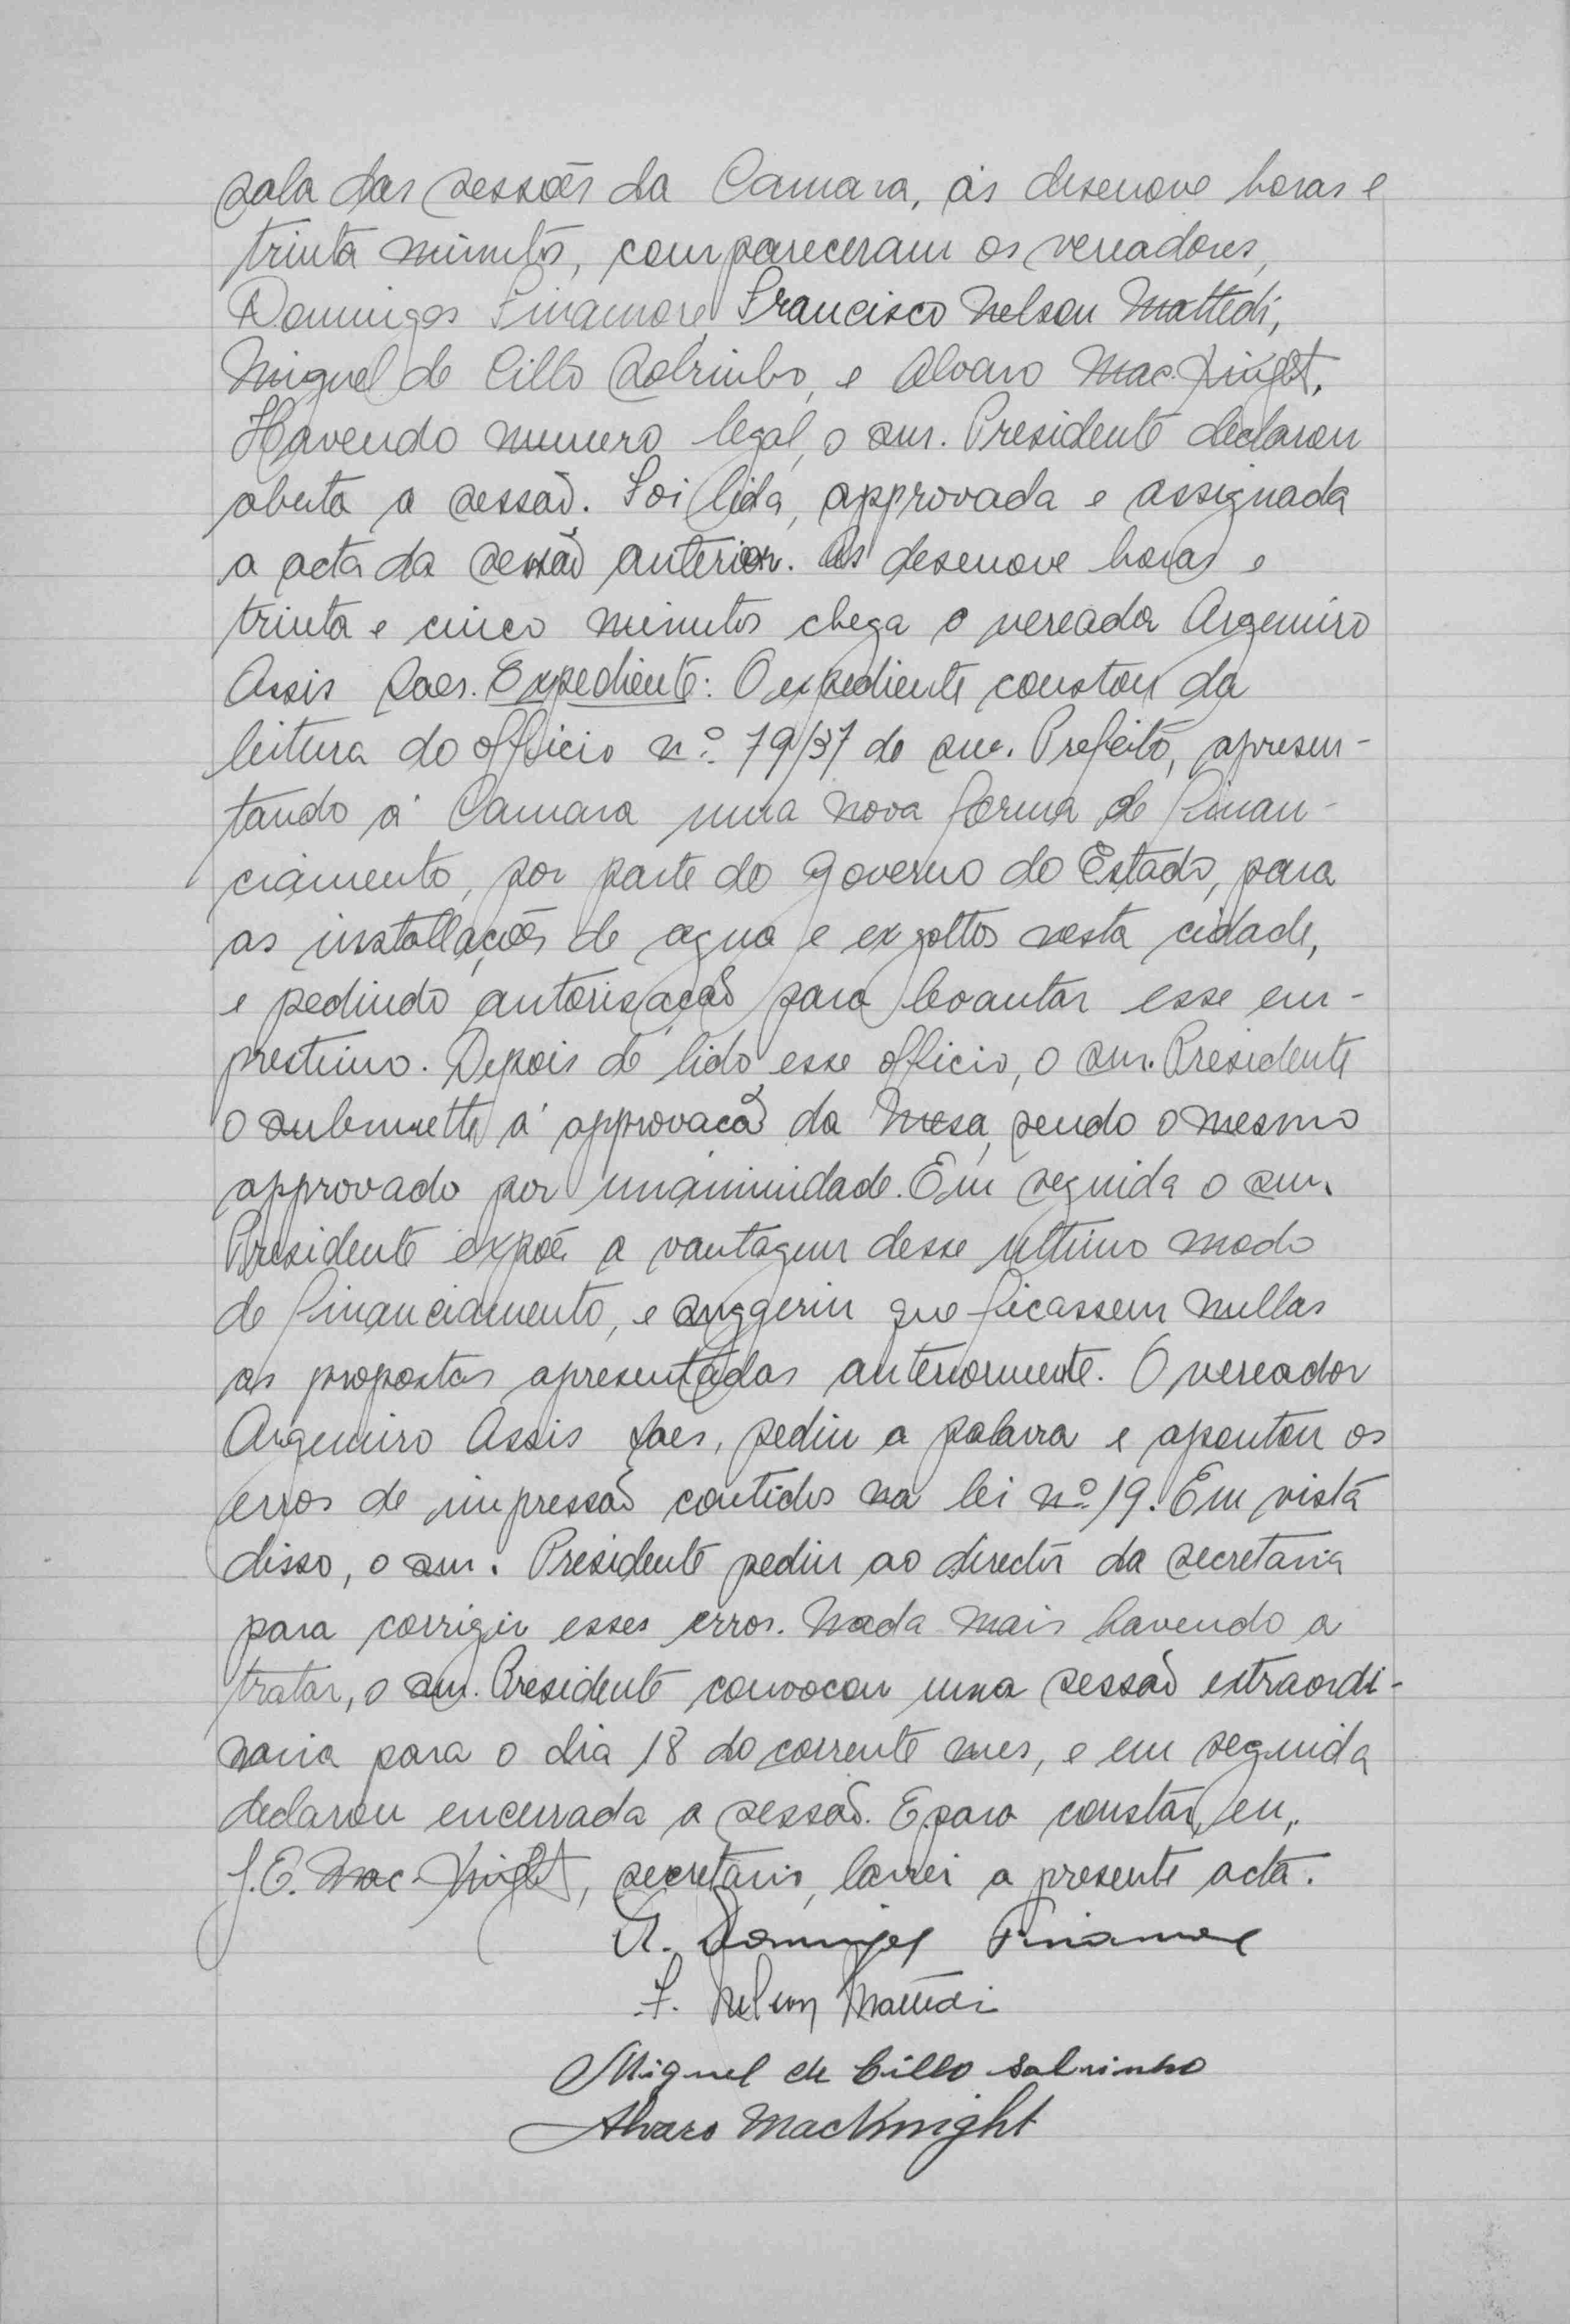 sala das sessões da Camara, ás desenove horas e
trinta minutos, compareceram os vereadores,
Domingos Finamore, Francisco Nelson Mattedi,
Miguel de Cillo Sobrinho, e Alvaro Mac. Knight.
Havendo numero legal, o snr. Presidente declarou
aberta a sessão. Foi lida, approvada e assignada
a acta da sessão anterior. Ás desenove horas e
trinta e cinco minutos chega o vereador Argemiro
Assis Saes. Expediente: O expediente constou da
leitura do officio n.º 79/37 do snr. Prefeito, apresen-
tando á Camara uma nova forma de finan-
ciamento, por parte do Governo do Estado, para
as installações de agua e exgottos nesta cidade,
e pedindo autorisação para levantar esse em-
prestimo. Depois de lido esse officio, o snr. Presidente
o submette á approvacão da Mesa, sendo o mesmo
approvado por unanimidade. Em seguida o snr.
Presidente expõe a vantagem desse ultimo modo
de financiamento, e suggeriu que ficassem nullas
as propostas apresentadas anteriormente. O vereador
Argemiro Assis Saes, pediu a palavra e apontou os
erros de impressão contidos na lei n.º 19. Em vista
disso, o snr. Presidente pediu ao director da secretaria
para corrigir esses erros. Nada mais havendo a
tratar, o snr. Presidente convocou uma sessão extraordi-
naria para o dia 18 do corrente mes, e em seguida
declarou encerrada a sessão. E para constar, eu,
J. E. Mac-Knight, secretario, lavrei a presente acta.
A. Domingos Finamore
F. Nelson Mattedi
Miguel de Cillo Sobrinho
Alvaro MacKnight